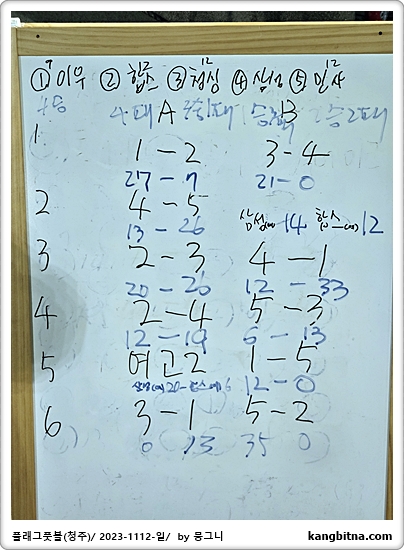 ① 이우 ② 합스 ③ 청싱 ④ 삼성 ⑤ 민사
4승 4패 A 2승1패 1승3패 B 2승2패
1 1-2 3-4
27-7 21-0
2 4-5 삼성(여)14 합스(여)12
13-26
3 2-3 4-1
20-26 12-33
4 2-4 5-3
12-19 6-13
5 여고2 1-5
삼성(여)20-합스(여)6 12-0
6 3-1 5-2
0 13 35 0
플래그풋볼(청주)/ 2023-1112-일/ by 뭉그니
kangbitna.com